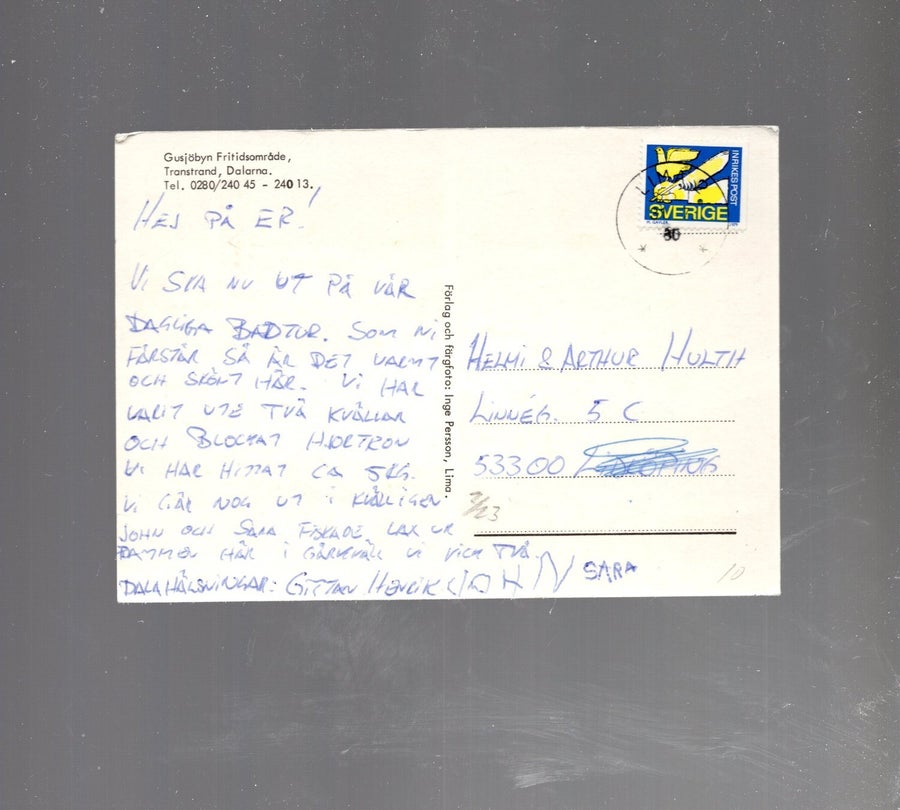 Gusjöbyn Fritidsområde,
Transtrand, Dalarna.
Tel. 0280/240 45 - 240 13.
HEJ PÅ ER!
VI SKA NU UT PÅ VÅR
DAGLIGA BADTUR. SOM NI
FÖRSTÅR SÅ ÄR DET VARMT
OCH SKÖNT HÄR. VI HAR
VARIT UTE TVÅ KVÄLLAR
OCH PLOCKAT HJORTRON
VI HAR HITTAT CA 5KG.
VI GÅR NOG UT I KVÄLL IGEN
JOHN OCH SARA FISKADE LAX UR
DAMMEN HÄR I GÅRKVÄLL VI FICK TVÅ
DALAHÄLSNINGAR: GITTAN HENRIK JOHN SARA
Förlag och färgfoto: Inge Persson, Lima.
INRIKES POST
SVERIGE
LIMA
80
HELMI & ARTHUR HULTH
LINNÉG. 5 C
53300 LIDKÖPING
10